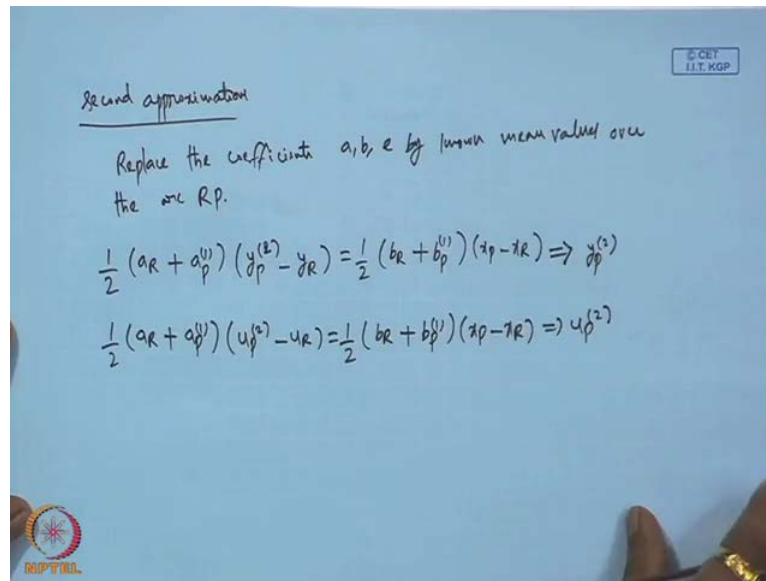 © CET
I.I.T. KGP
Second approximation
Replace the coefficients a, b, c by known mean values over
the arc RP.
1/2 (a_R + a_p^(1)) (y_p^(2) - y_R) = 1/2 (b_R + b_p^(1)) (x_p - x_R) ⇒ y_p^(2)
1/2 (a_R + a_p^(1)) (u_p^(2) - u_R) = 1/2 (b_R + b_p^(1)) (x_p - x_R) ⇒ u_p^(2)
NPTEL